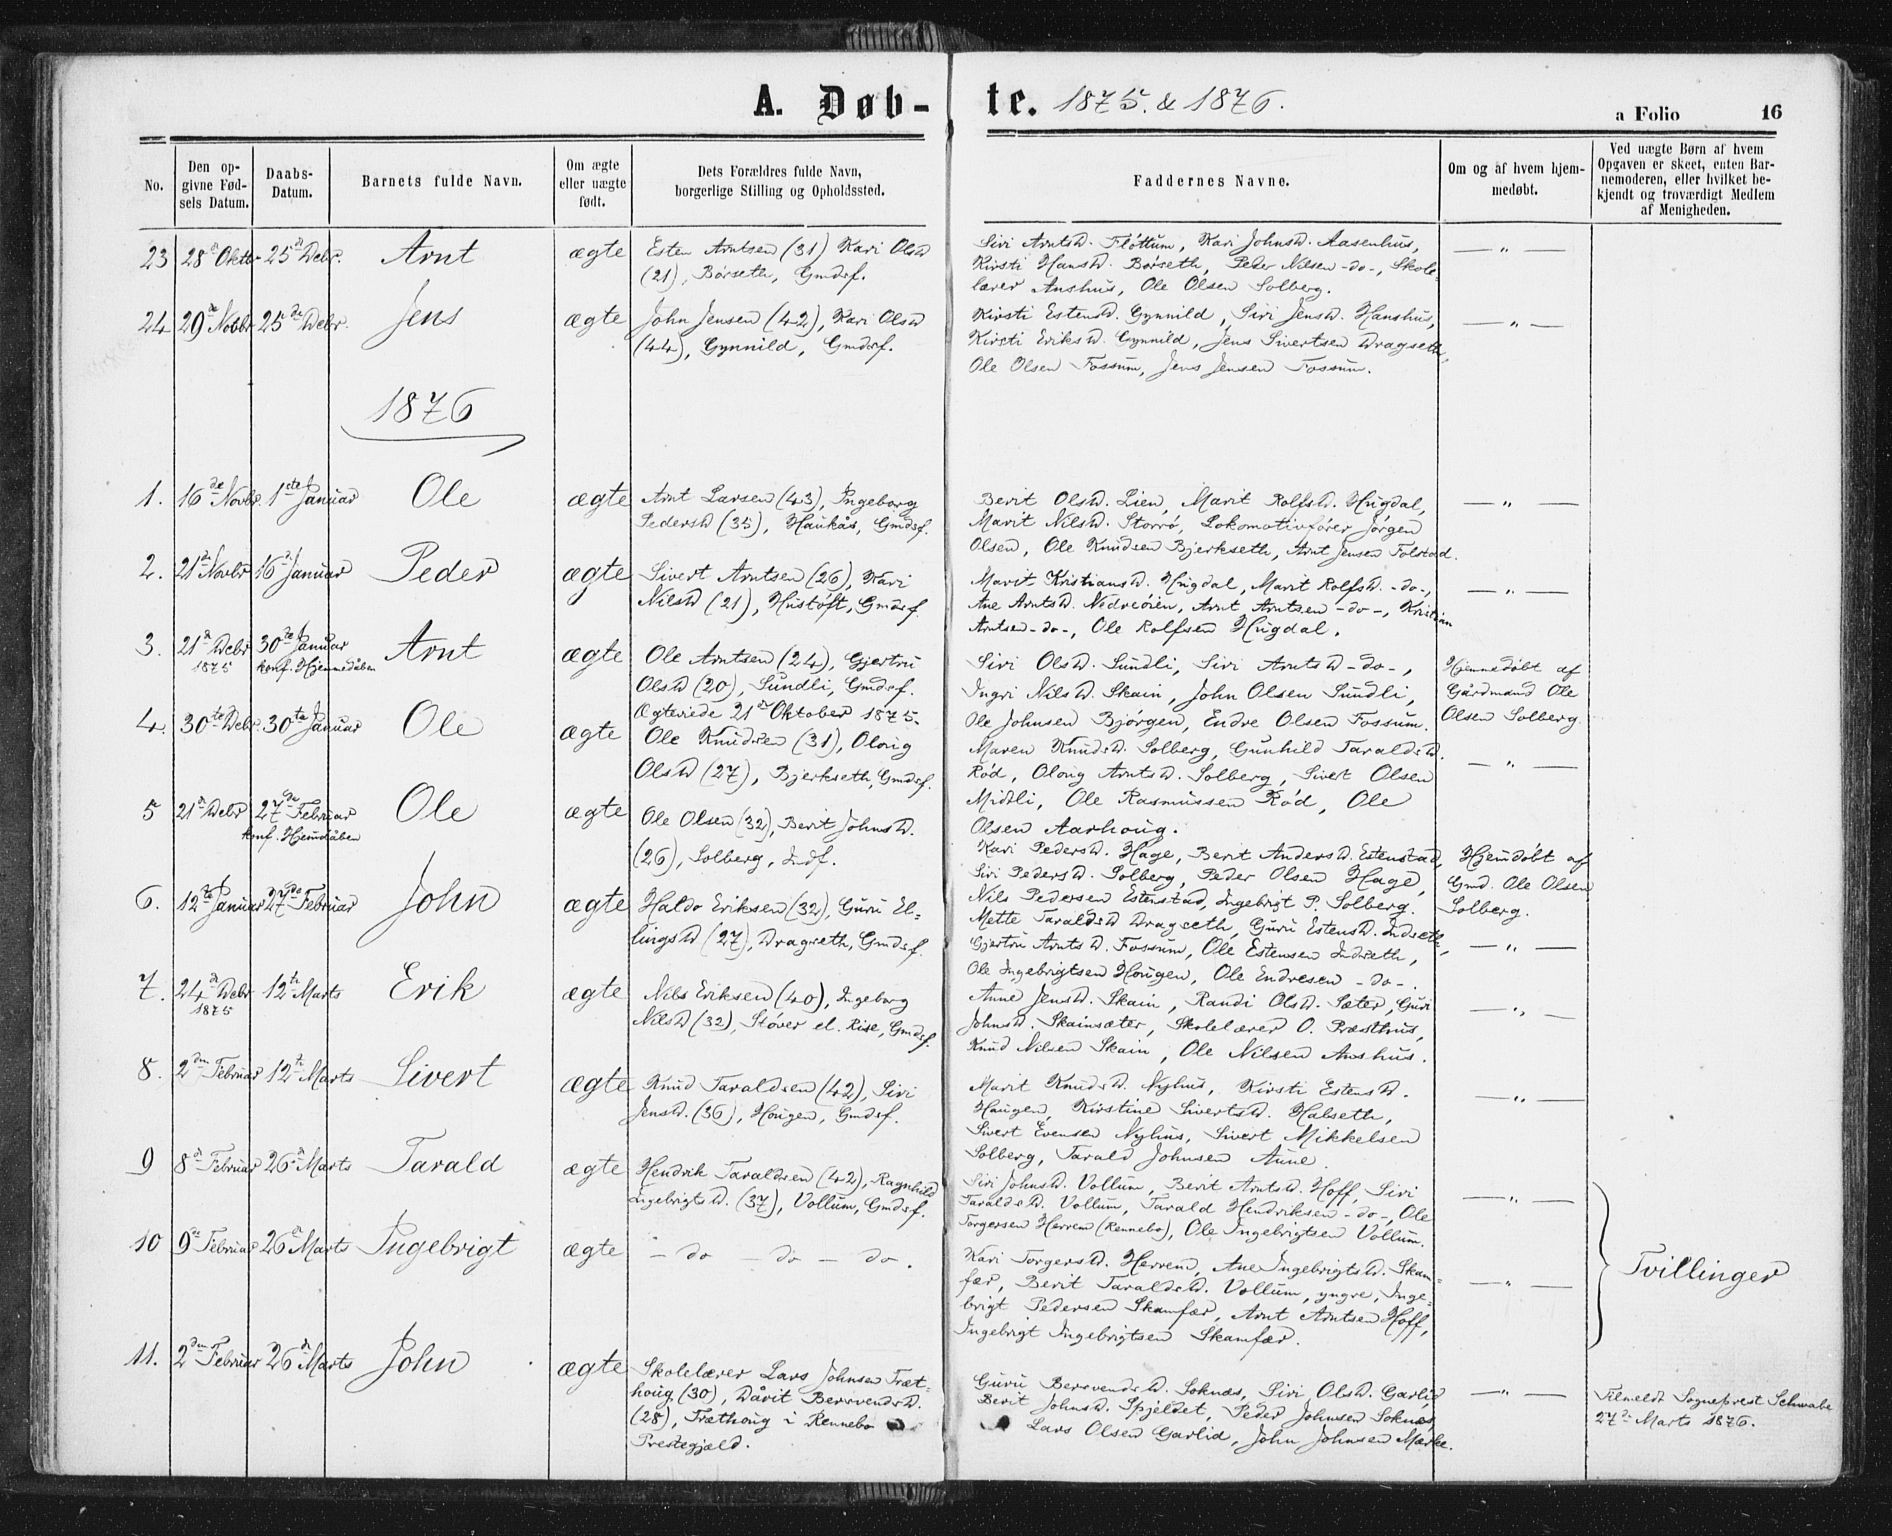 A. Døb-
te. 1875. & 1876.
a Folio 16
No.
Den op-
givne Fød-
sels Datum.
Daabs-
Datum.
Barnets fulde Navn.
Om ægte
eller uægte
født.
Dets Forældres fulde Navn,
borgerlige Stilling og Opholdssted.
Faddernes Navne.
Om og af hvem hjem-
medøbt.
Ved uægte Børn af hvem
Opgaven er skeet, enten Bar-
nemoderen, eller hvilket be-
kjendt og troværdigt Medlem
af Menigheden.
23 28de Oktbr 25de Debr. Arnt ægte
Esten Arntsen (31) Kari Olsd
(21), Börseth, Gmdsf.
Siri Arntsd. Flöttum, Kari Johnsd. Aasenhus,
Kirsti Hansd. Börseth, Peder Nilsen -do-, Skole-
lærer Aushus, Ole Olsen Solberg.
— " —
24 29de Novbr 25de Debr. Jens ægte
John Jensen (42), Kari Olsd
(44), Gynnild, Gmdsf.
Kirsti Estensd. Gynnild, Siri Jensd. Hanshus,
Kirsti Eriksd. Gynnild, Jens Sivertsen Dragseth,
Ole Olsen Fossum, Jens Jensen Fossum.
— " —
1876
1. 16de Novbr. 1ste Januar Ole ægte
Arnt Larsen (43), Ingeborg
Pedersd (35), Haukås, Gmdsf.
Berit Olsd. Lien, Marit Rolfsd. Hugdal,
Marit Nilsd. Storrö, Lokomotivförer Jörgen
Olsen, Ole Knudsen Bjerkseth, Arnt Jensen Folstad.
— " —
2. 21de Novbr 16de Januar Peder ægte
Sivert Arntsen (26), Kari
Nilsd (21), Hustöft, Gmdsf.
Marit Kristiansd. Hugdal, Marit Rolfsd. -do-,
Ane Arntsd. Nedreöien, Arnt Arntsen -do-, Kristian
Arntsen -do-, Ole Rolfsen Hugdal.
— " —
3. 21de Debr 1875 30te Januar Arnt ægte
konf. Hjemmedåben
Ole Arntsen (24), Gjertru
Olsd (20), Sundli, Gmdsf.
Ægteviede 21de Oktober 1875.
Siri Olsd. Sundli, Siri Arntsd -do-,
Ingri Nilsd. Skain, John Olsen Sundli,
Ole Johnsen Bjørgen, Endre Olsen Fossum.
Hjemmedöbt af
Gårdmand Ole
Olsen Solberg.
4. 30te Debr. 30te Januar Ole ægte
Ole Knudsen (31), Oloug
Olsd (27), Bjerkseth, Gmdsf.
Maren Knudsd. Solberg, Gunhild Taraldsd.
Röd, Oloug Arntsd. Solberg, Sivert Olsen
Midtli, Ole Rasmussen Röd, Ole
Olsen Aarhoug.
— " —
5 21de Debr 27de Februar Ole ægte
konf. Hjemdåben
Ole Olsen (32), Berit Johnsd.
(26), Solberg, Indf.
Kari Pedersd. Hage, Berit Andersd. Estenstad,
Siri Pedersd. Solberg, Peder Olsen Hage,
Nils Pedersen Estenstad, Ingebrigt P. Solberg.
Hjemdöbt af
Gmd. Ole Olsen
Solberg.
6. 12te Januar 27de Februar John ægte
Haldo Eriksen (32), Guru El-
lingsd (27), Dragseth, Gmdsf.
Mette Taraldsd Dragseth, Guru Estensd. Indseth,
Gjertru Arntsd. Fossum, Ole Estensen Indseth,
Ole Ingebrigtsen Hougen, Ole Endresen -do-.
— " —
7. 24de Debr 1875 12te Marts Erik ægte
Nils Eriksen (40), Ingeborg
Nilsd (32), Stöver el. Rise, Gmdsf.
Anne Jensd. Skain, Randi Olsd. Sæter, Guri
Johnsd. Skainsæter, Skolelærer O. Præsthus,
Knud Nilsen Skain, Ole Nilsen Aushus.
— " —
8. 2den Februar 12te Marts Sivert ægte
Knud Taraldsen (42), Siri
Jensd. (36), Hougen, Gmdsf.
Marit Knudsd. Nyhus, Kirsti Estensd.
Haugen, Kirstine Sivertsd. Halseth,
Sivert Evensen Nyhus, Sivert Mikkelsen
Solberg, Tarald Johnsen Aune.
— " —
9 8de Februar 26de Marts Tarald ægte
Hendrik Taraldsen (42), Ragnhild
Ingebrigtsd. (37), Vollum, Gmdsf.
Siri Johnsd. Vollum, Berit Arntsd. Hoff, Siri
Taraldsd. Vollum, Tarald Hendriksen -do-, Ole
Torgersen Herrem (Rennebo), Ole Ingebrigtsen Vollum.
— " —
10 9de Februar 26de Marts Ingebrigt ægte
- do - do - do.
Kari Torgersd. Herrem, Ane Ingebrigtsd. Skam-
fær, Berit Taraldsd. Vollum, yngre, Inge-
brigt Pedersen Skamfær, Arnt Arntsen Hoff,
Ingebrigt Ingebrigtsen Skamfær.
— " —
Tvillinger
11. 2den Februar 26de Marts John ægte
Skolelærer Lars Johnsen Træt-
houg (30), Dårit Bersvendsd.
(28), Træthoug i Rennebo
Prestegjæld.
Guru Bersvendsd. Soknæs, Siri Olsd. Garlid,
Berit Johnsd. Spjeldet, Peder Johnsen Soknæs,
Lars Olsen Garlid, John Johnsen Mærke.
— " —
Tilmeldt Sogneprest Schwabe
27de Marts 1876.